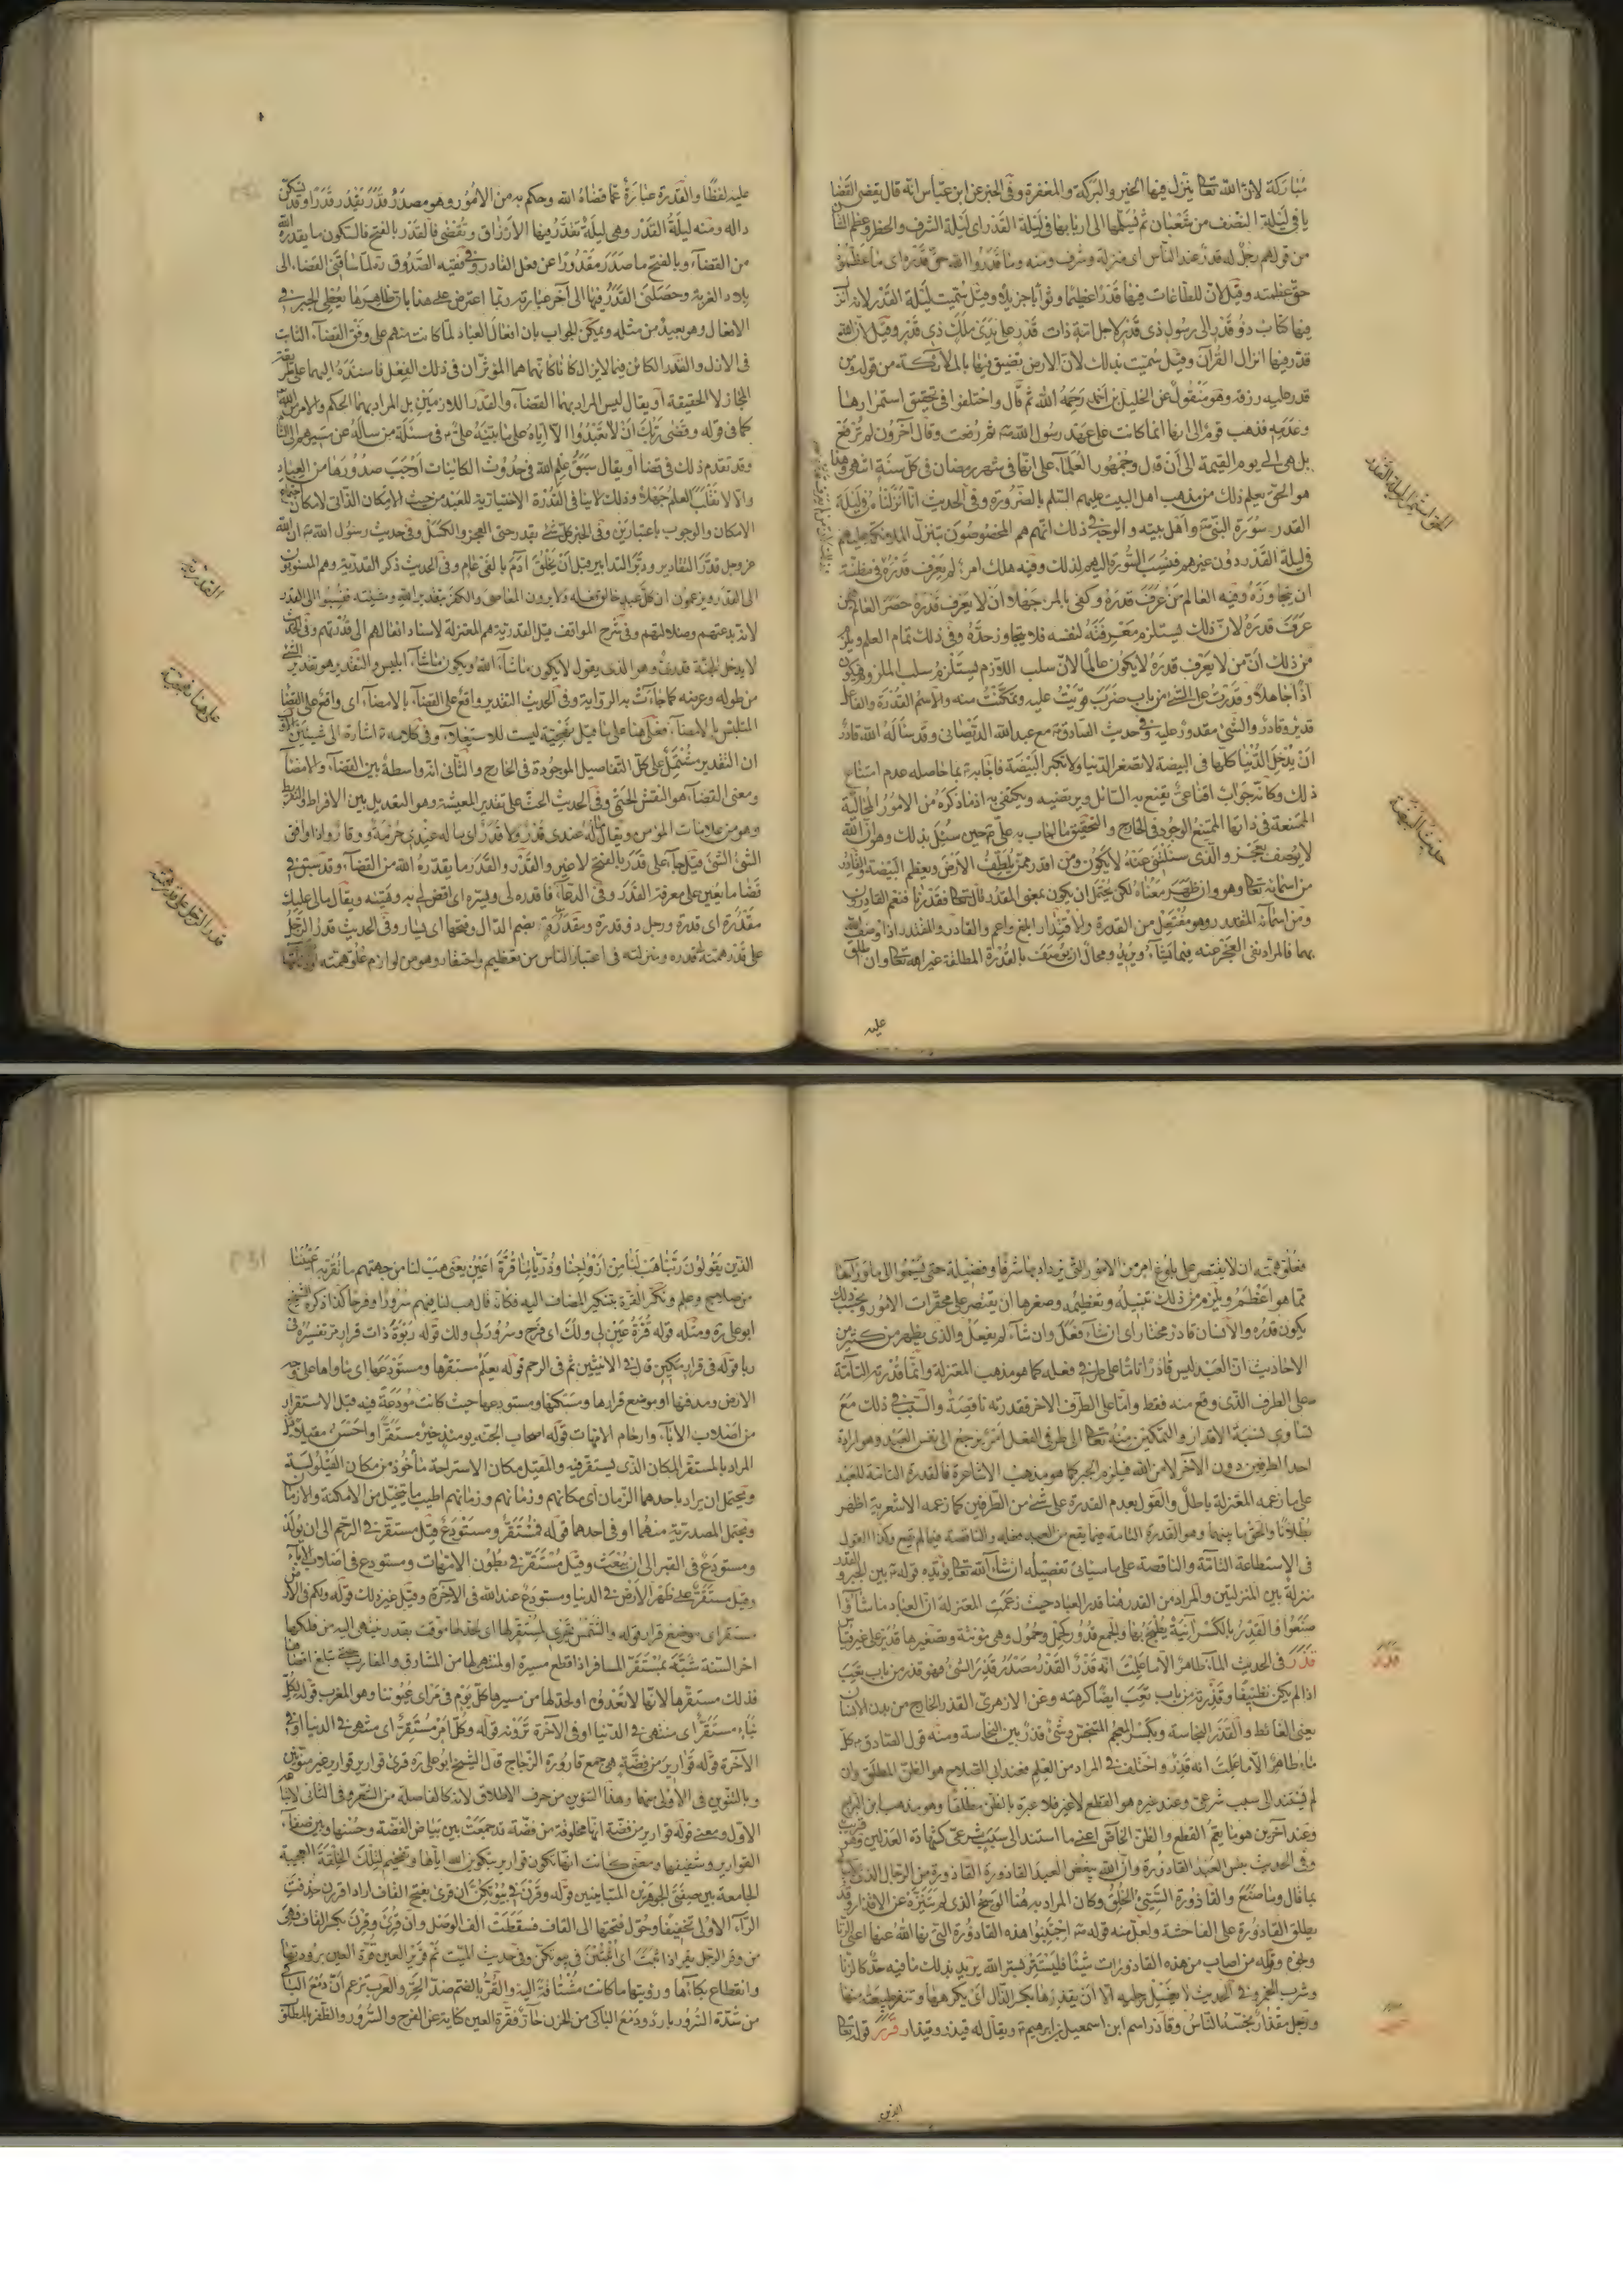 مباركة لان الله تعا ينزل فيها الخير والبركة والمغفرة وفى الخبر عن ابن عباس انه قال يقضى القضا
يا فى ليلة النصف من شعبان ثم يسلمها الى اربابها فى ليلة القدر اى ليلة الشرف والخطر وعظم الشأن
من قولهم رجل له قدر عند الناس اى منزلة وشرف ومنه وما قدروا الله حق قدره اى ما عظموه
حق عظمته وقيل لان للطاعات فيها قدرا عظيما وثوابا جزيلا وقيل سميت ليلة القدر لانه انزل
فيها كتاب ذو قدر الى رسول ذى قدر لاجل امة ذات قدر على يدى ملك ذى قدر وقيل لان الله
قدر فيها انزال القرآن وقيل سميت بذلك لان الارض تضيق فيها بالملائكة من قوله ومن
قدر عليه رزقه وهو منقول عن الخليل بن احمد رحمه الله ثم قال واختلفوا فى تحقيق استمرارها
وعدمه فذهب قوم الى انها انما كانت على عهد رسول الله ص ثم رفعت وقال آخرون لم ترفع
بل هى الى يوم القيمة الى ان قال وجمهور العلماء على انها فى شهر رمضان فى كل سنة انتهى وهذا
هو الحق يعلم ذلك من مذهب اهل البيت عليهم السلم بالضرورة وفى الحديث انا انزلناه فى ليلة
القدر سورة النبى ص واهل بيته والوجه فى ذلك انهم هم المخصوصون بتنزل الملائكة عليهم
فى ليلة القدر دون غيرهم فنسبت السورة اليهم لذلك وفيه هلك امرء لم يعرف قدره فى مظنة
ان يتجاوزه وفيه العالم من عرف قدره وكفى بالمرء جهلا ان لا يعرف قدره حصر العالم فيمن
عرف قدره لان ذلك يستلزم معرفته لنفسه فلا يتجاوز حده وفى ذلك تمام العلم ويلزم
من ذلك ان من لا يعرف قدره لا يكون عالما لان سلب اللازم يستلزم سلب الملزوم فيكون
اذا جاهلا وقدرت على الشئ من باب ضرب قويت عليه وتمكنت منه والاسم القدرة والفاعل
قدير وقادر والشئ مقدور عليه وفى حديث الصادق ع مع عبد الله الديصانى وقد سأله الله قادر
ان يدخل الدنيا كلها فى البيضة لا تصغر الدنيا ولا تكبر البيضة فاجابه ع بما حاصله عدم امتناع
ذلك وكانه جواب اقناعى يقنع به السائل ويرتضيه ويكتفى به اذ ما ذكره من الامور المحالية
الممتنعة فى ذاتها الممتنع الوجود فى الخارج والتحقيق ما اجاب به على ع حين سئل بذلك وهو ان الله
لا يوصف بعجز والذى سئلتنى عنه لا يكون ومن اقدر ممن يلطف الارض ويعظم البيضة والقادر
من اسمائه تعا وهو وان ظهر معناه لكن يحتمل ان يكون بمعنى المقدر قال تعا فقدرنا فنعم القادرون
ومن اسمائه المقتدر وهو مفتعل من القدرة والاقتدار ابلغ واعم والقادر والمقتدر اذا وصف الله
بهما فالمراد نفى العجز عنه فيما يشاء ويريد ومحال ان يوصف بالقدرة المطلقة غير الله تعا وان اطلق
عليه
المخو استمرار ليلة القدر
حديث البيضة
عليه لفظا والقدرة عبارة عما قضاه الله وحكم به من الامور وهو مصدر قدر يقدر قدرا وقد تسكن
داله ومنه ليلة القدر وهى ليلة تقدر فيها الارزاق وتقضى فالقدر بالفتح فالسكون ما يقدره الله
من القضاء وبالفتح ما صدر مقدورا عن فعل القادر وفى فقيه الصدوق ره لما ساقنى القضاء الى
بلاد الغربة وحصلنى القدر فيها الى آخر عبارته ربما اعترض على هذا بان ظاهرها يعطى الجبر فى
الافعال وهو بعيد من مثله ويمكن الجواب بان افعال العباد لما كانت منهم على وفق القضاء الثابت
فى الازل والقدر الكائن فيما لا يزال كانا كانهما هما المؤثران فى ذلك الفعل فاسنده اليهما على طريقة
المجاز لا الحقيقة او يقال ليس المراد بهما القضاء والقدر اللازمين بل المراد بهما الحكم والامر من الله
كما فى قوله وقضى ربك ان لا تعبدوا الا اياه على ما بينه على ع فى مسئلة من سأله عن مسيرهم الى الشام
وقد تقدم ذلك فى قضا او يقال سبق علم الله فى حدوث الكائنات اوجب صدورها من العباد
والا لانقلب العلم جهلا وذلك لا ينافى القدرة الاختيارية للعبد من حيث الامكان الذاتى لامكان اجتماع
الامكان والوجوب باعتبارين وفى الخبر كل شئ بقدر حتى العجز والكسل وفى حديث رسول الله ص ان الله
عز وجل قدر المقادير ودبر التدابير قبل ان يخلق آدم بالفى عام وفى الحديث ذكر القدرية وهم المنسوبون
الى القدر ويزعمون ان كل عبد خالق فعله ولا يرون المعاصى والكفر بتقدير الله ومشيته فنسبوا الى القدر
لانه بدعتهم وضلالتهم وفى شرح المواقف قيل القدرية هم المعتزلة لاسناد افعالهم الى قدرتهم وفى الحديث
لا يدخل الجنة قدرى وهو الذى يقول لا يكون ما شاء الله ويكون ما شاء ابليس والتقدير هو تقدير الشئ
من طوله وعرضه كما جاءت به الرواية وفى الحديث التقدير واقع على القضاء بالامضاء اى واقع على القضا
المتلبس بالامضاء فعلى هنا على ما قيل نهجية ليست للاستعلاء وفى كلامه ع اشارة الى شيئين الاول
ان التقدير مشتمل على كل التفاصيل الموجودة فى الخارج والثانى انه واسطة بين القضاء والامضاء
ومعنى القضاء هو النقش الحتمى وفى الحديث الحث على تقدير المعيشة وهو التعديل بين الافراط والتفريط
وهو من علامات المؤمن ويقال ماله عندى قدر ولا قدر اى ماله عندى حرمة ووقار واذا وافق
الشئ الشئ قيل جاء على قدر بالفتح لا غير والقدر والقدر ما يقدره الله من القضاء وقد سبق فى
قضا ما يعين على معرفة القدر وفى الدعاء فاقدره لى ويسره اى اقض لى به وهيئه ويقال مالى عليك
مقدرة اى قدرة ورجل ذو قدرة ومقدرة بضم الدال وفتحها اى يسار وفى الحديث قدر الرجل
على قدر همته قدره ومنزلته فى اعتبار الناس من تعظيم واحتقار وهو من لوازم علو همته
القدرية
على هنا نهجية
قدر الرجل على قدر همته
فعلو همته ان لا يقتصر على بلوغ امر من الامور التى يزداد بها شرفا وفضيلة حتى يسموا الى ما وراها
مما هو اعظم ويلزم من ذلك تنبيله وتعظيمه وصغرها ان يقتصر على محقرات الامور وبحسب ذلك
يكون قدره والانسان قادر مختار اى ان شاء فعل وان شاء لم يفعل والذى يظهر من كثير من
الاحاديث ان العبد ليس قادرا تاما على طرفى فعله كما هو مذهب المعتزلة وانما قدرته التامة
على الطرف الذى وقع منه فقط واما على الطرف الاخر فقدرته ناقصة والسبب فى ذلك مع
تساوى نسبة الاقدار والتمكين منه تعا الى طرفى الفعل امر يرجع الى نفس العبد وهو ارادة
احد الطرفين دون الاخر لا من الله فيلزم الجبر كما هو مذهب الاشاعرة فالقدرة التامة للعبد
على ما زعمه المعتزلة باطل والقول بعدم القدرة على شئ من الطرفين كما زعمه الاشعرية اظهر
بطلانا والحق ما بينهما وهو القدرة التامة فيما يقع من العبد فعله والناقصة فيما لم يقع وكذا القول
فى الاستطاعة التامة والناقصة على ما سياتى تفصيله ان شاء الله تعا يؤيده قوله ع بين الجبر والقدر
منزلة بين المنزلتين والمراد من القدر هنا قدر العباد حيث زعمت المعتزلة ان العباد ما شاؤا
صنعوا والقدر بالكسر آنية يطبخ بها والجمع قدور كحمل وحمول وهى مؤنثة وتصغيرها قدير على غير قياس
قذر فى الحديث الماء طاهر الا ما علمت انه قذر القذر مصدر قذر الشئ فهو قذر من باب تعب
اذا لم يكن نظيفا وقذرته من باب تعب ايضا كرهته وعن الازهرى القذر الخارج من بدن الانسان
يعنى الغائط والقذر النجاسة وبكسر المعجم المتنجس وشئ قذر بين النجاسة ومنه قول الصادق ع كل
ماء طاهر الا ما علمت انه قذر واختلف فى المراد من العلم فعند ابى الصلاح هو الظن المطلق وان
لم يستند الى سبب شرعى وعند غيره هو القطع لا غير فلا عبرة بالظن مطلقا وهو مذهب ابن البراج
وعند اخرين هو ما يعم القطع والظن الخاص اعنى ما استند الى سبب شرعى كشهادة العدلين وهو قريب
وفى الحديث بئس العبد القاذورة وان الله يبغض العبد القاذورة القاذورة من الرجال الذى لا يبالى
بما قال وما صنع والقاذورة السيئ الخلق وكان المراد به هنا الوسخ الذى لم يتنزه عن الاقذار وقد
يطلق القاذورة على الفاحشة ولعل منه قوله ص اجتنبوا هذه القاذورة التى نها الله عنها اعنى الزنا
ونحوه وقوله من اصاب من هذه القاذورات شيئا فليستتر بستر الله يريد بذلك ما فيه حد كالزنا
وشرب الخمر وفى الحديث لا يغتسل رجليه الا ان يقذرها بكسر الذال اى يكرهها وتنفر طبيعته منها
ورجل مقذر يجتنبه الناس وقاذر اسم ابن اسمعيل بن ابراهيم ع ويقال له قيذر وقيذار قرر قوله تعا
الذين
قذر
قرر
الذين يقولون ربنا هب لنا من ازواجنا وذرياتنا قرة اعين يعنى هب لنا من جهتهم ما تقر به عيوننا
من صلاح وعلم ونكر القرة بتنكير المضاف اليه فكانه قال هب لنا منهم سرورا وفرحا كذا ذكره الشيخ
ابو على ره ومثله قوله قرة عين لى ولك اى فرح وسرور لى ولك قوله ربوة ذات قرار مر تفسيره فى
ربا قوله فى قرار مكين قال فى الانثيين ثم فى الرحم قوله يعلم مستقرها ومستودعها اى ماواها على وجه
الارض ومدفنها او موضع قرارها ومسكنها ومستودعها حيث كانت مودعة فيه قبل الاستقرار
من اصلاب الآباء وارحام الامهات قوله اصحاب الجنة يومئذ خير مستقرا واحسن مقيلا قيل
المراد بالمستقر المكان الذى يستقر فيه والمقيل مكان الاستراحة مأخوذ من مكان القيلولة
ويحتمل ان يراد باحدهما الزمان اى مكانهم وزمانهم اطيب ما يتخيل من الامكنة والازمان
ويحتمل المصدرية منهما او فى احدهما قوله فمستقر ومستودع قيل مستقر فى الرحم الى ان يولد
ومستودع فى القبر الى ان يبعث وقيل مستقر فى بطون الامهات ومستودع فى اصلاب الآباء
وقيل مستقر على ظهر الارض فى الدنيا ومستودع عند الله فى الآخرة وقيل غير ذلك قوله ولكم فى الارض
مستقر اى موضع قرار قوله والشمس تجرى لمستقر لها اى لحد لها موقت بقدر تنتهى اليه من فلكها
اخر السنة شبه بمستقر المسافر اذا قطع مسيره او لمنتهى لها من المشارق والمغارب حتى تبلغ اقصاها
فذلك مستقرها لانها لا تعدوه او لحد لها من مسيرها كل يوم فى مراى عيوننا وهو المغرب قوله لكل
نباء مستقر اى منتهى فى الدنيا او فى الآخرة ترونه قوله وكل امر مستقر اى منتهى فى الدنيا او فى
الآخرة قوله قوارير من فضة هى جمع قارورة الزجاج قال الشيخ ابو على ره قرئ قوارير قوارير غير منونين
وبالتنوين فى الاولى منهما وهذا التنوين من حرف الاطلاق لانه كالفاصلة من الشعر وفى الثانى لاتباعه
الاول ومعنى قوله قوارير من فضة انها مخلوقة من فضة قد جمعت بين بياض الفضة وحسنها وبين صفاء
القوارير وشفيفها ومعنى كانت انها تكون قوارير بتكوين الله اياها وتفخيم لتلك الخلقة العجيبة
الجامعة بين صفتى الجوهرين المتباينين قوله وقرن فى بيوتكن ان قرئ بفتح القاف اراد اقررن حذفت
الراء الاولى تخفيفا وحول فتحتها الى القاف فسقطت الف الوصل وان قرئ وقرن بكسر القاف فهى
من وقر الرجل يقر اذا ثبت اى اثبتن فى بيوتكن وفى حديث الميت ثم قرير العين قرة العين برودتها
وانقطاع بكائها ورؤيتها ما كانت مشتاقة اليه والقر بالضم ضد الحر والعرب تزعم ان دمع الباكى
من شدة السرور بارد ودمع الباكى من الحزن حار فقرة العين كناية عن الفرح والسرور والظفر بالمطلوب